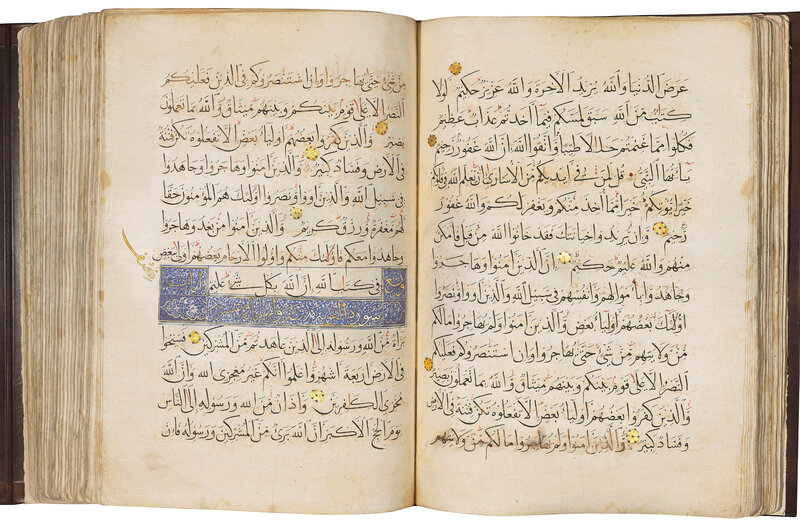 عرض الدنيا والله يريد الاخرة والله عزيز حكيم لولا
كتاب من الله سبق لمسكم فيما اخذتم عذاب عظيم
فكلوا مما غنمتم حلالا طيبا واتقوا الله ان الله غفور رحيم
يا ايها النبي قل لمن في ايديكم من الاسارى ان يعلم الله في قلوبكم
خيرا يؤتكم خيرا مما اخذ منكم ويغفر لكم والله غفور
رحيم وان يريدوا خيانتك فقد خانوا الله من قبل فامكن
منهم والله عليم حكيم ان الذين امنوا وهاجروا
وجاهدوا باموالهم وانفسهم في سبيل الله والذين اووا ونصروا
اولئك بعضهم اولياء بعض والذين امنوا ولم يهاجروا ما لكم
من ولايتهم من شيء حتى يهاجروا وان استنصروكم فعليكم
النصر الا على قوم بينكم وبينهم ميثاق والله بما تعملون بصير
والذين كفروا بعضهم اولياء بعض الا تفعلوه تكن فتنة في الارض
وفساد كبير والذين امنوا ولم يهاجروا ما لكم من ولايتهم
من شيء حتى يهاجروا وان استنصروكم في الدين فعليكم
النصر الا على قوم بينكم وبينهم ميثاق والله بما تعملون
بصير والذين كفروا بعضهم اولياء بعض الا تفعلوه تكن فتنة
في الارض وفساد كبير والذين امنوا وهاجروا وجاهدوا
في سبيل الله والذين اووا ونصروا اولئك هم المؤمنون حقا
لهم مغفرة ورزق كريم والذين امنوا من بعد وهاجروا
وجاهدوا معكم فاولئك منكم واولوا الارحام بعضهم اولى ببعض
في كتاب الله ان الله بكل شيء عليم
سورة التوبة مدنية
براة من الله ورسوله الى الذين عاهدتم من المشركين فسيحوا
في الارض اربعة اشهر واعلموا انكم غير معجزي الله وان الله
مخزي الكافرين واذان من الله ورسوله الى الناس
يوم الحج الاكبر ان الله بريء من المشركين ورسوله فان